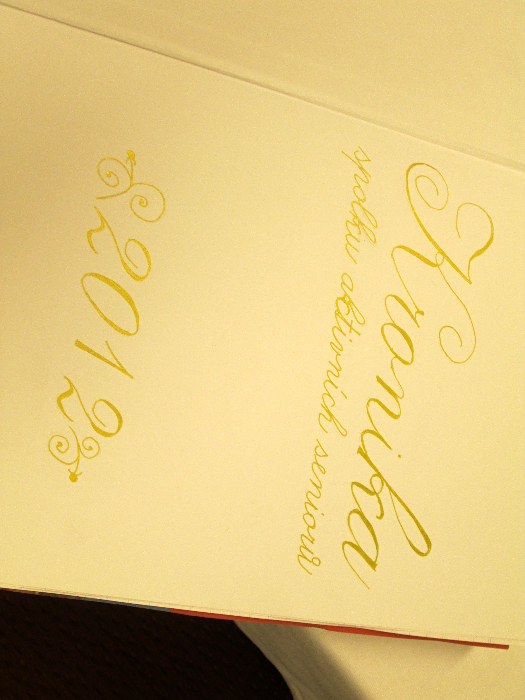 Kronika
spolku aktivních seniorů
2012